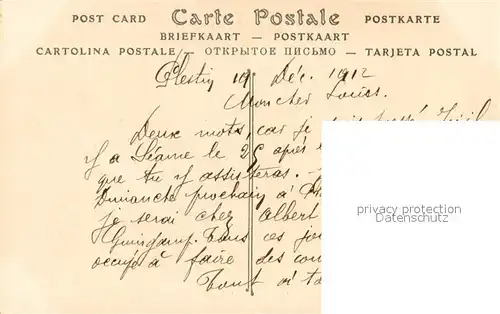 POST CARD Carte Postale POSTKARTE
BRIEFKAART — POSTKAART
CARTOLINA POSTALE — ОТКРЫТОЕ ПИСЬМО — TARJETA POSTAL
Plestin 19 Déc. 1912
Mon cher Louis.
Deux mots, car je
y a Séance le 25 après
que tu y assisteras.
Dimanche prochain à
je serai chez Albert
Guingamp. Tous ces
occupé à faire des
Tout à
privacy protection
Datenschutz